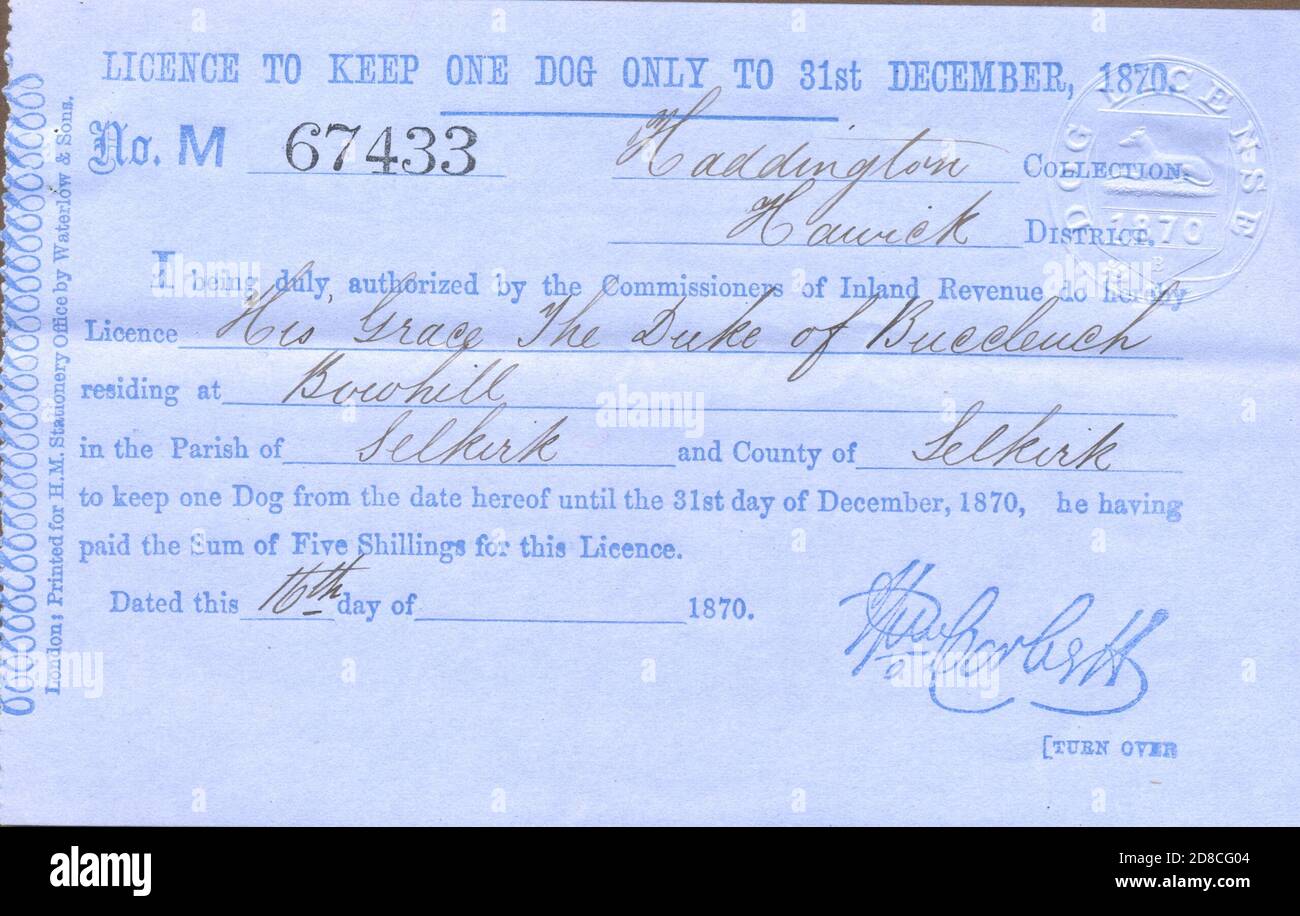 LICENCE TO KEEP ONE DOG ONLY TO 31st DECEMBER, 1870.
No. M 67433 Haddington COLLECTION.
Hawick DISTRICT.
DOG LICENSE
1870
I being duly authorized by the Commissioners of Inland Revenue do hereby
Licence His Grace The Duke of Buccleuch
residing at Bowhill
in the Parish of Selkirk and County of Selkirk
to keep one Dog from the date hereof until the 31st day of December, 1870, he having
paid the Sum of Five Shillings for this Licence.
Dated this 16th day of 1870.
Wm Corbett
[TURN OVER
London; Printed for H.M. Stationery Office by Waterlow & Sons.
alamy
alamy
Image ID: 2D8CG04
www.alamy.com